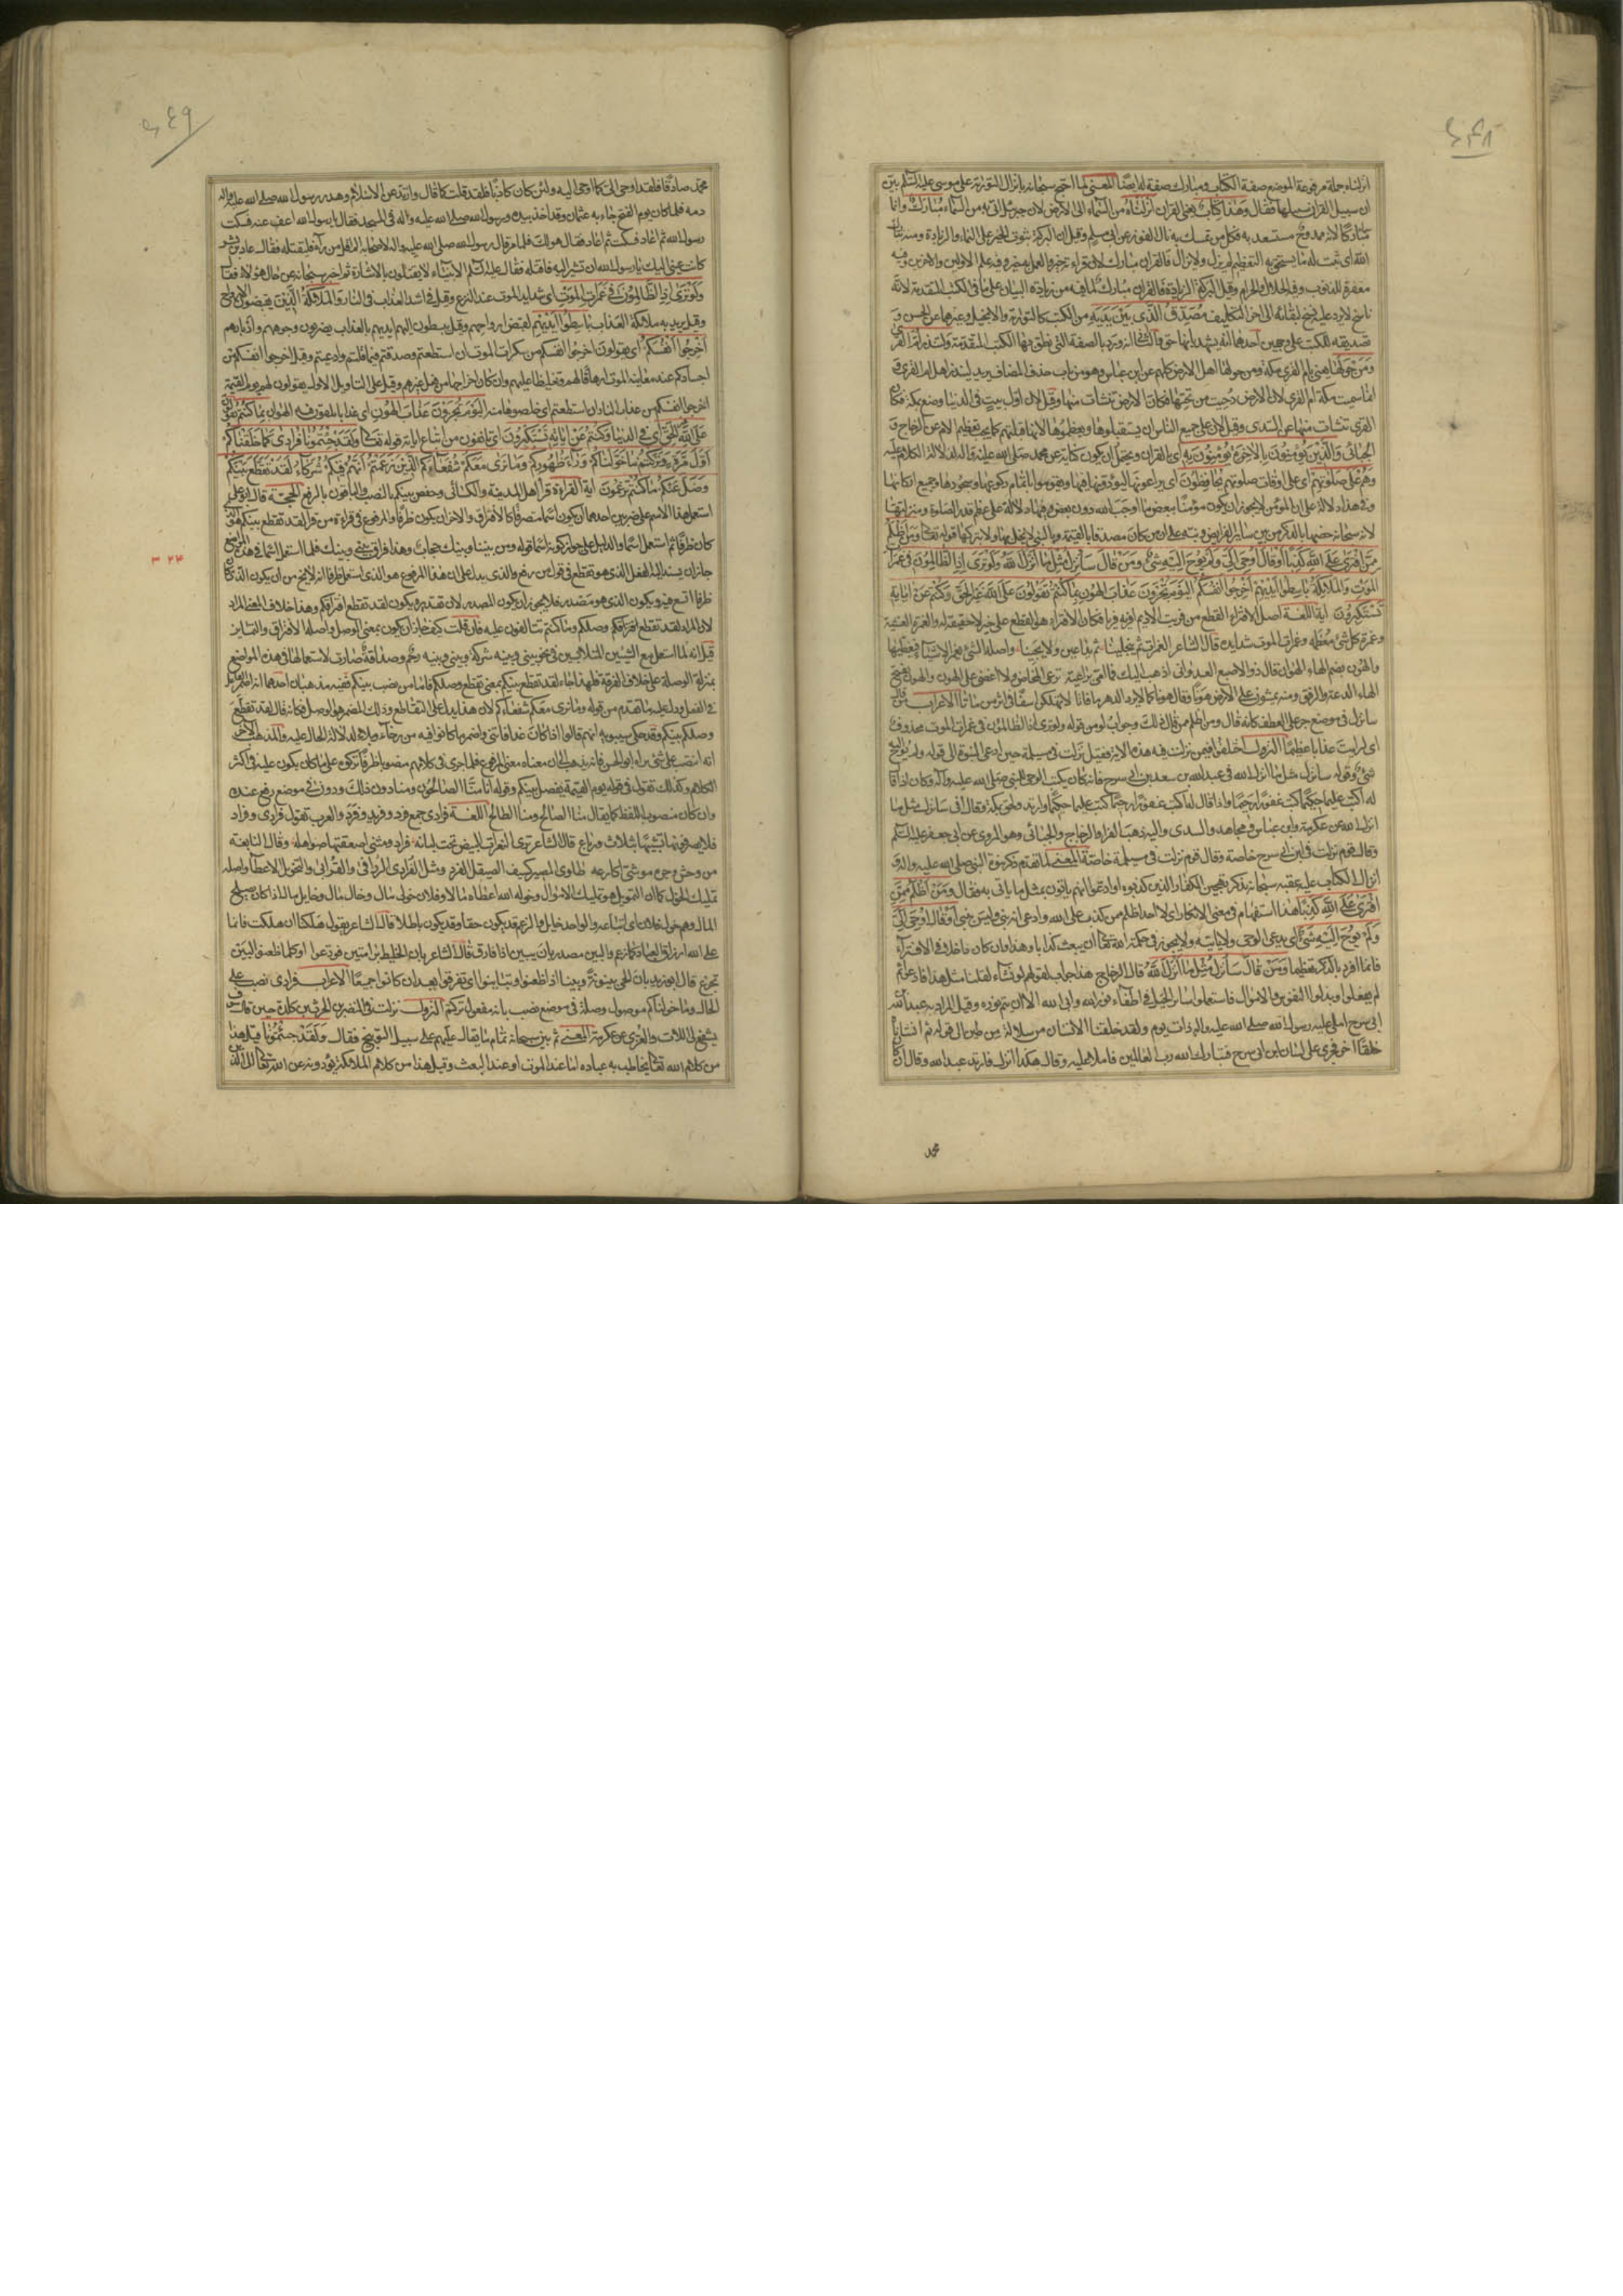 انزلناه جملة مرفوعة الموضع صفة لكتاب ومبارك صفة له ايضا المعنى لما احتج سبحانه بانزال التورية على موسى عليه السلم بين
ان سبيل القران سبيلها فقال وهذا كتاب يعني القران انزلناه من السماء الى الارض لان جبرئيل اتى به من السماء مبارك وانما
سماه مباركا لانه ممدوح مستسعد به فكل من تمسك به نال الفوز عن ابي مسلم وقيل ان البركة ثبوت الخير على النماء والزيادة ومنه تبارك
الله اي ثبت له ما يستحق به التعظيم لم يزل ولا يزال فالقران مبارك لان قراءته خير والعمل به خير وفيه علم الاولين والاخرين وفيه
مغفرة للذنوب وفيه الحلال والحرام وقيل البركة الزيادة فالقران مبارك لما فيه من زيادة البيان على ما في الكتب المتقدمة لانه
ناسخ لا يرد عليه نسخ لبقائه الى اخر التكليف مصدق الذي بين يديه من الكتب كالتورية والانجيل وغيرهما عن الحسن و
تصديقه للكتب على وجهين احدهما انه يشهد بانها حق والثاني انه ورد بالصفة التي نطق بها الكتب المتقدمة ولتنذر ام القرى
ومن حولها يعني بام القرى مكة ومن حولها اهل الارض كلهم عن ابن عباس وهو من باب حذف المضاف يريد لينذر اهل ام القرى و
انما سميت مكة ام القرى لان الارض دحيت من تحتها فكان الارض نشات منها وقيل لان اول بيت في الدنيا وضع بمكة فكان
القرى تنشات منها عن السدي وقيل لان على جميع الناس ان يستقبلوها ويعظموها لانها قبلتهم كما يجب تعظيم الام عن الزجاج و
الجبائي والذين يؤمنون بالاخرة يؤمنون به اي بالقران ويحتمل ان يكون كناية عن محمد صلى الله عليه واله لدلالة الكلام عليه
وهم على صلوتهم اي على اوقات صلوتهم يحافظون اي يراعونها ليؤدوها فيها ويقوموا باتمام ركوعها وسجودها وجميع اركانها
وفي هذا دلالة على ان المؤمن لا يجوز ان يكون مؤمنا ببعض ما اوجب الله دون بعض وفيها دلالة على عظم قدر الصلوة ومنزلتها
لانه سبحانه خصها بالذكر من بين ساير الفرايض ونبه على ان من كان مصدقا بالقيمة وبالنبي لا يخل بها ولا يتركها قوله تعالى ومن اظلم
ممن افترى على الله كذبا او قال اوحي الي ولم يوح اليه شيء ومن قال سانزل مثل ما انزل الله ولو ترى اذ الظالمون في غمرات
الموت والملائكة باسطوا ايديهم اخرجوا انفسكم اليوم تجزون عذاب الهون بما كنتم تقولون على الله غير الحق وكنتم عن اياته
تستكبرون اية اللغة اصل الافتراء القطع من فريت الاديم افريه فريا فكان الافتراء هو القطع على خبر لا حقيقة له والغمرة الغشية
وغمرة كل شيء معظمه وغمرات الموت شدايده قال الشاعر الغمرات ثم ينجلينا ثم يذهبن ولا يجينا واصله الشيء يغمر الاشياء فيغطيها
والهون بضم الهاء الهوان قال ذو الاصبع العدواني اذهب اليك فما امي براعية ترعى المخاض ولا اغضي على الهون والهون بفتح
الهاء الدعة والرفق ومنه يمشون على الارض هونا وقال هونا كما لا يرد الدهر ما فاتا لا تهلكن اسفا في اثر من ماتا الاعراب ومن قال
سانزل في موضع جر على العطف كانه قال ومن اظلم ممن قال ذلك وجواب لو من قوله ولو ترى اذ الظالمون في غمرات الموت محذوف
اي لرايت عذابا عظيما النزول اختلفوا فيمن نزلت فيه هذه الاية فقيل نزلت في مسيلمة حيث ادعى النبوة الى قوله ولم يوح اليه
شيء وقوله سانزل مثل ما انزل الله في عبد الله بن سعد بن ابي سرح فانه كان يكتب الوحي للنبي صلى الله عليه واله وكان اذا قال
له اكتب عليما حكيما كتب غفورا رحيما واذا قال له اكتب غفورا رحيما كتب عليما حكيما وارتد ولحق بمكة وقال اني سانزل مثل ما
انزل الله عن عكرمة وابن عباس ومجاهد والسدي واليه ذهب الفراء والزجاج والجبائي وهو المروي عن ابي جعفر عليه السلم
وقال قوم نزلت في ابن ابي سرح خاصة وقال قوم نزلت في مسيلمة خاصة المعنى لما تقدم ذكر نبوة النبي صلى الله عليه واله و
انزال الكتاب عليه عقبه سبحانه بذكر تهجين الكفار الذين كذبوه او ادعوا انهم ياتون بمثل ما ياتي به فقال ومن اظلم ممن
افترى على الله كذبا هذا استفهام في معنى الانكار اي لا احد اظلم ممن كذب على الله وادعى انه نبي وليس بنبي او قال اوحي الي
ولم يوح اليه شيء اي يدعي الوحي ولا ياتيه ولا يجوز في حكمة الله تعالى ان يبعث كذابا وهذا وان كان داخلا في الافتراء
فانما افرد بالذكر تعظيما ومن قال سانزل مثل ما انزل الله قال الزجاج هذا جواب لقولهم لو نشاء لقلنا مثل هذا فادعوا ثم
لم يفعلوا وبذلوا النفوس والاموال واستعملوا ساير الحيل في اطفاء نور الله وابى الله الا ان يتم نوره وقيل المراد به عبد الله بن
ابي سرح املى عليه رسول الله صلى الله عليه واله ذات يوم ولقد خلقنا الانسان من سلالة من طين الى قوله ثم انشاناه
خلقا اخر فجرى على لسان ابن ابي سرح فتبارك الله رب العالمين فاملاه عليه وقال هكذا انزل فارتد عبد الله وقال ان كان
محمد
محمد صادقا فلقد اوحي الي كما اوحي اليه ولئن كان كاذبا فلقد قلت كما قال وارتد عن الاسلام وهدر رسول الله صلى الله عليه واله
دمه فلما كان يوم الفتح جاء به عثمان وقد اخذ بيده ورسول الله صلى الله عليه واله في المسجد فقال يا رسول الله اعف عنه فسكت
رسول الله ثم اعاد فسكت ثم اعاد فقال هو لك فلما مر قال رسول الله صلى الله عليه واله لاصحابه الم اقل من راه فليقتله فقال عباد بن بشر
كانت عيني اليك يا رسول الله ان تشير اليه فاقتله فقال عليه السلم الانبياء لا يقتلون بالاشارة ثم اخبر سبحانه عن حال هؤلاء فقال
ولو ترى اذ الظالمون في غمرات الموت اي شدايد الموت عند النزع وقيل في اشد العذاب في النار والملائكة الذين يقبضون الارواح
وقيل يريد به ملائكة العذاب باسطوا ايديهم لقبض ارواحهم وقيل يبسطون اليهم ايديهم بالعذاب يضربون وجوههم وادبارهم
اخرجوا انفسكم اي يقولون اخرجوا انفسكم من سكرات الموت ان استطعتم وصدقتم فيما قلتم وادعيتم وقيل اخرجوا انفسكم من
اجسادكم عند معاينة الموت ارهاقا لهم وتغليظا عليهم وان كان اخراجها من فعل غيرهم وقيل على التاويل الاول يقولون لهم يوم القيمة
اخرجوا انفسكم من عذاب النار ان استطعتم اي خلصوها منه اليوم تجزون عذاب الهون اي عذابا تلقون فيه الهوان بما كنتم تقولون
على الله غير الحق اي في الدنيا وكنتم عن اياته تستكبرون اي تانفون من اتباع اياته قوله تعالى ولقد جئتمونا فرادى كما خلقناكم
اول مرة وتركتم ما خولناكم وراء ظهوركم وما نرى معكم شفعاءكم الذين زعمتم انهم فيكم شركاء لقد تقطع بينكم
وضل عنكم ما كنتم تزعمون اية القراءة قرا اهل المدينة والكسائي وحفص بينكم بالنصب والباقون بالرفع الحجة قال ابو علي
استعمل هذا الاسم على ضربين احدهما ان يكون اسما متصرفا كالافتراق والاخر ان يكون ظرفا والمرفوع في قراءة من قرا لقد تقطع بينكم هو الذي
كان ظرفا ثم استعمل اسما والدليل على جواز كونه اسما قوله ومن بيننا وبينك حجاب وهذا فراق بيني وبينك فلما استعمل اسما في هذه المواضع
جاز ان يسند اليه الفعل الذي هو تقطع في قول من رفع والذي يدل على ان هذا المرفوع هو الذي استعمل ظرفا انه لا يخلو من ان يكون الذي كان
ظرفا اتسع فيه او يكون الذي هو مصدر فلا يجوز ان يكون المصدر لان تقديره يكون لقد تقطع افتراقكم وهذا خلاف المعنى المراد
لان المراد لقد تقطع وصلكم وما كنتم تتالفون عليه فان قلت كيف جاز ان يكون بمعنى الوصل واصله الافتراق والتباين
قيل انه لما استعمل مع الشيئين المتلابسين في نحو بيني وبينه شركة وبيني وبينه رحم وصداقة صارت لاستعمالها في هذه المواضع
بمنزلة الوصلة على خلاف الفرقة فلهذا جاء لقد تقطع بينكم بمعنى تقطع وصلكم فاما من نصب بينكم ففيه مذهبان احدهما انه اضمر الفاعل
في الفعل ودل عليه ما تقدم من قوله وما نرى معكم شفعاءكم لان هذا يدل على التقاطع وذلك المضمر هو الوصل فكانه قال لقد تقطع
وصلكم بينكم وقد حكى سيبويه انهم قالوا اذا كان غدا فاتني واضمر ما كانوا فيه من رخاء وبلاء لدلالة الحال عليه والمذهب الاخر
انه انتصب على شيء يراه ابو الحسن فانه يذهب الى ان معناه معنى المرفوع فلما جرى في كلامهم منصوبا ظرفا تركوه على ما كان يكون عليه في اكثر
الكلام وكذلك تقول في قوله يوم القيمة يفصل بينكم وقوله وانا منا الصالحون ومنا دون ذلك ودون في موضع رفع عنده
وان كان منصوب اللفظ كما يقال منا الصالح ومنا الطالح اللغة فرادى جمع فرد وفريد وفرد والعرب تقول فرادى وفراد
فلا يصرفونها تشبيها بثلاث ورباع قال الشاعر ترى النعرات البيض تحت لبانه فراد ومثنى اصعقتها صواهله وقال النابغة
من وحش وجرة موشي اكارعه طاوي المصير كسيف الصيقل الفرد ومثل الفرادى الردافى والقرابى والتخويل الاعطاء واصله
تمليك الخول كما ان التمويل هو تمليك الاموال وخوله الله اعطاه مالا وفلان خولي مال وخال مال وخايل مال اذا كان يصلح
المال وهم خول فلان اي اتباعه والواحد خايل والزعم قد يكون حقا وقد يكون باطلا قال الشاعر يقول هلكنا ان هلكت وانما
على الله ارزاق العباد كما زعم والبين مصدر بان يبين اذا فارق قال الشاعر بان الخليط برامتين فودعوا او كلما ظعنوا لبين
تجزع قال ابو زيد بان الحي بينونة وبينا اذا ظعنوا وتباينوا اي تفرقوا بعد ان كانوا جميعا الاعراب فرادى نصب على
الحال وما خولناكم موصول وصلة في موضع نصب بانه مفعول تركتم النزول نزلت في النضر بن الحرث بن كلدة حين قال سوف
يشفع لي اللات والعزى عن عكرمة المعنى ثم بين سبحانه تمام ما يقال عليهم على سبيل التوبيخ فقال ولقد جئتمونا قيل هذا
من كلام الله تعالى يخاطب به عباده اما عند الموت او عند البعث وقيل هذا من كلام الملائكة يؤدونه عن الله تعالى الى الذين